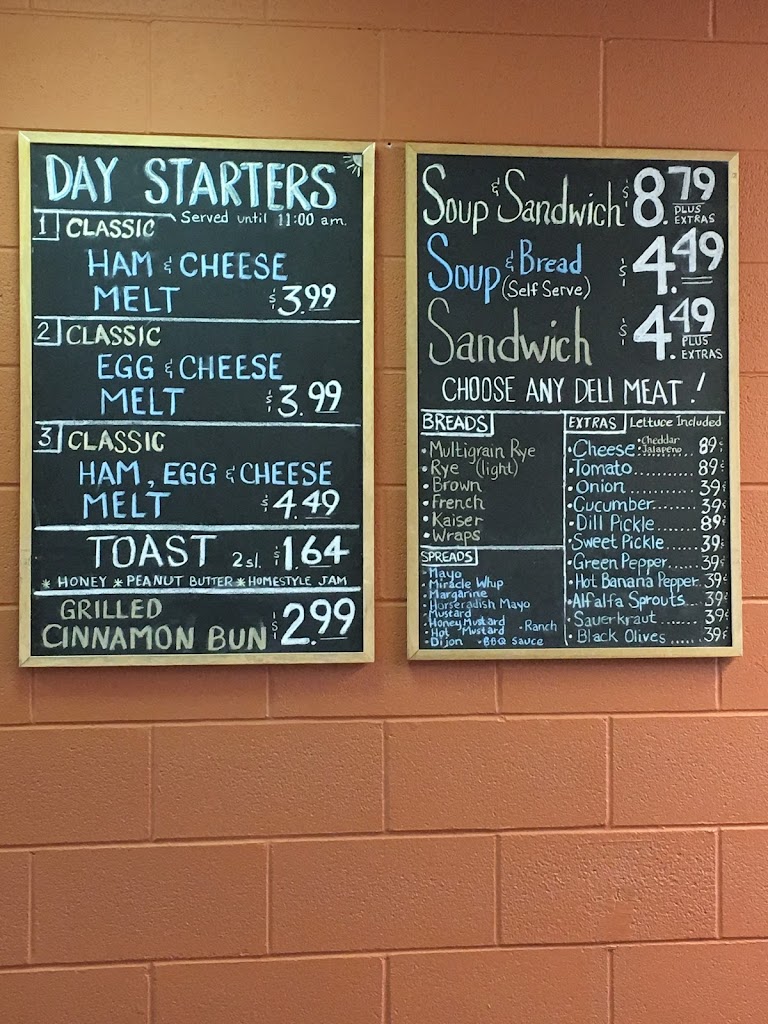 DAY STARTERS
Served until 11:00 am.
1 CLASSIC
HAM & CHEESE
MELT $3.99
2 CLASSIC
EGG & CHEESE
MELT $3.99
3 CLASSIC
HAM, EGG & CHEESE
MELT $4.49
TOAST 2 sl. $1.64
* HONEY * PEANUT BUTTER * HOMESTYLE JAM
GRILLED
CINNAMON BUN $2.99
Soup & Sandwich $8.79
PLUS
EXTRAS
Soup & Bread $4.49
(Self Serve)
Sandwich $4.49
PLUS
EXTRAS
CHOOSE ANY DELI MEAT!
BREADS
• Multigrain Rye
• Rye (light)
• Brown
• French
• Kaiser
• Wraps
SPREADS
• Mayo
• Miracle Whip
• Margarine
• Horseradish Mayo
• Mustard
• Honey Mustard • Ranch
• Hot Mustard
• Dijon • BBQ Sauce
EXTRAS Lettuce Included
• Cheese • Cheddar • Jalapeno .. 89¢
• Tomato............ 89¢
• Onion............. 39¢
• Cucumber......... 39¢
• Dill Pickle......... 89¢
• Sweet Pickle...... 39¢
• Green Pepper..... 39¢
• Hot Banana Pepper. 39¢
• Alfalfa Sprouts... 39¢
• Sauerkraut ...... 39¢
• Black Olives ..... 39¢